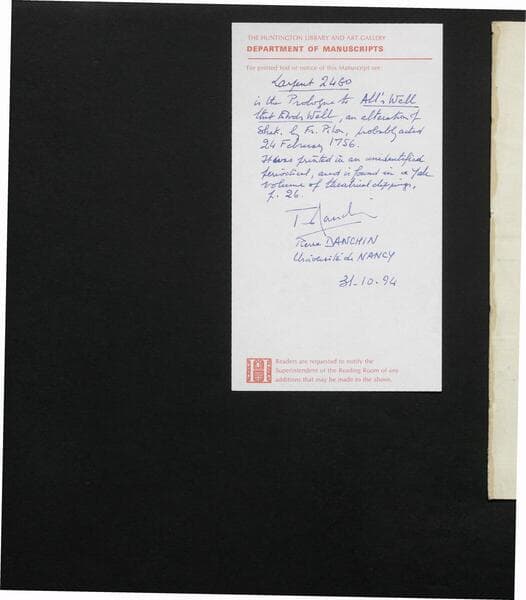 THE HUNTINGTON LIBRARY AND ART GALLERY
DEPARTMENT OF MANUSCRIPTS
For printed text or notice of this Manuscript see:
Larpent 2460
is the Prologue to All's Well
that Ends Well, an alteration of
Shak. by Fr. Pilon, probably acted
24 February 1756.
It was printed in an unidentified
periodical, and is found in a Yale
volume of theatrical clippings,
p. 26.
Pierre DANCHIN
Université de NANCY
31-10-94
Readers are requested to notify the
Superintendent of the Reading Room of any
additions that may be made to the above.